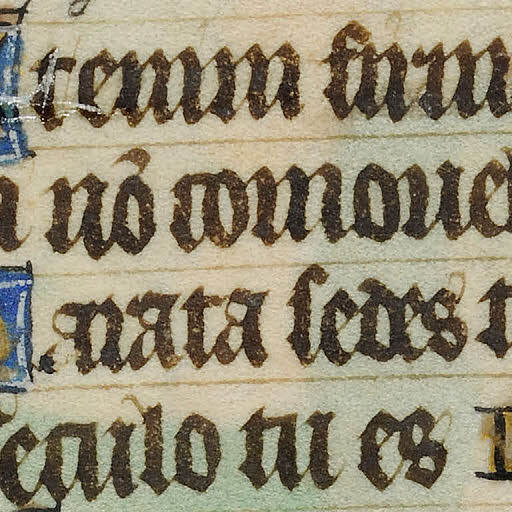 tenim firm
n nō comoue
nata sedes t
seculo tu es